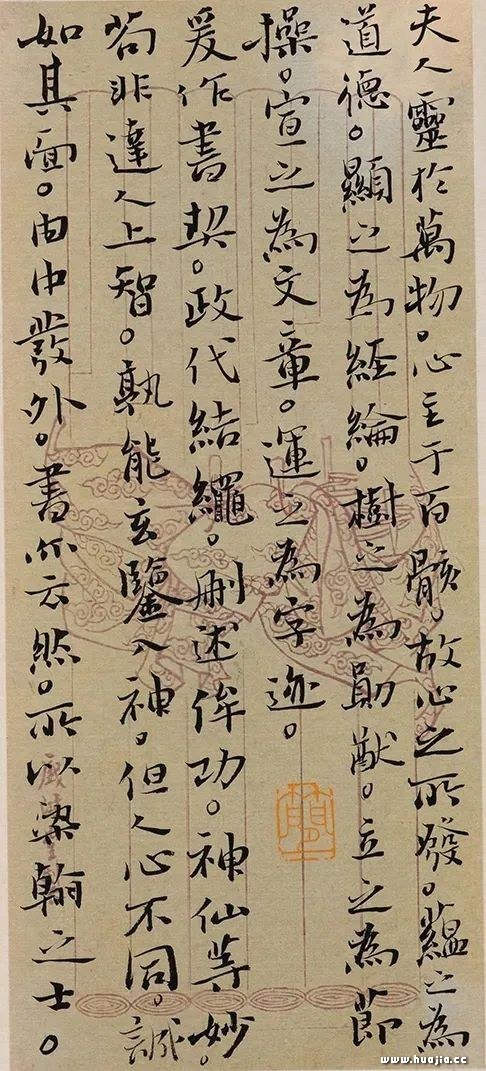 夫人靈於萬物。心主于百骸。故心之所發。蘊之為
道德。顯之為經綸。樹之為勛猷。立之為節
操。宣之為文章。運之為字迹。
爰作書契。政代結繩。刪述侔功。神仙等妙。
苟非達人上智。孰能玄鑒入神。但人心不同。誠
如其面。由中發外。書亦云然。所以染翰之士。
www.huajia.cc